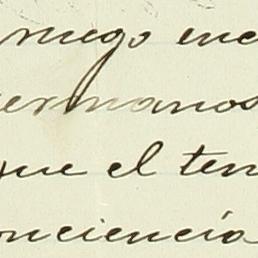 ruego enc
ermanos
que el ten
onciencia